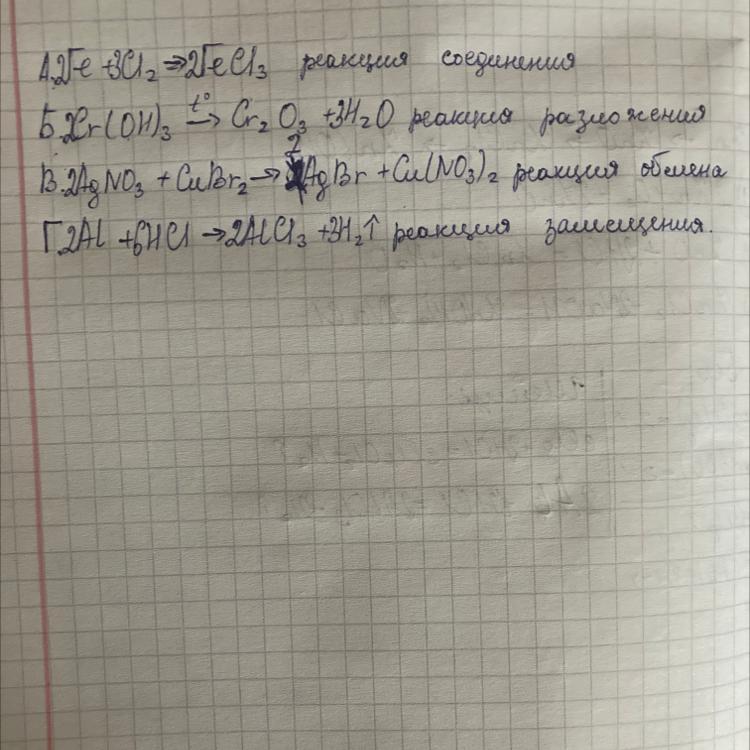 А. 2Fe + 3Cl₂ → 2FeCl₃ реакция соединения
Б. 2Cr(OH)₃ t°→ Cr₂O₃ + 3H₂O реакция разложения
В. 2AgNO₃ + CuBr₂ → 2AgBr + Cu(NO₃)₂ реакция обмена
Г. 2Al + 6HCl → 2AlCl₃ + 3H₂↑ реакция замещения.